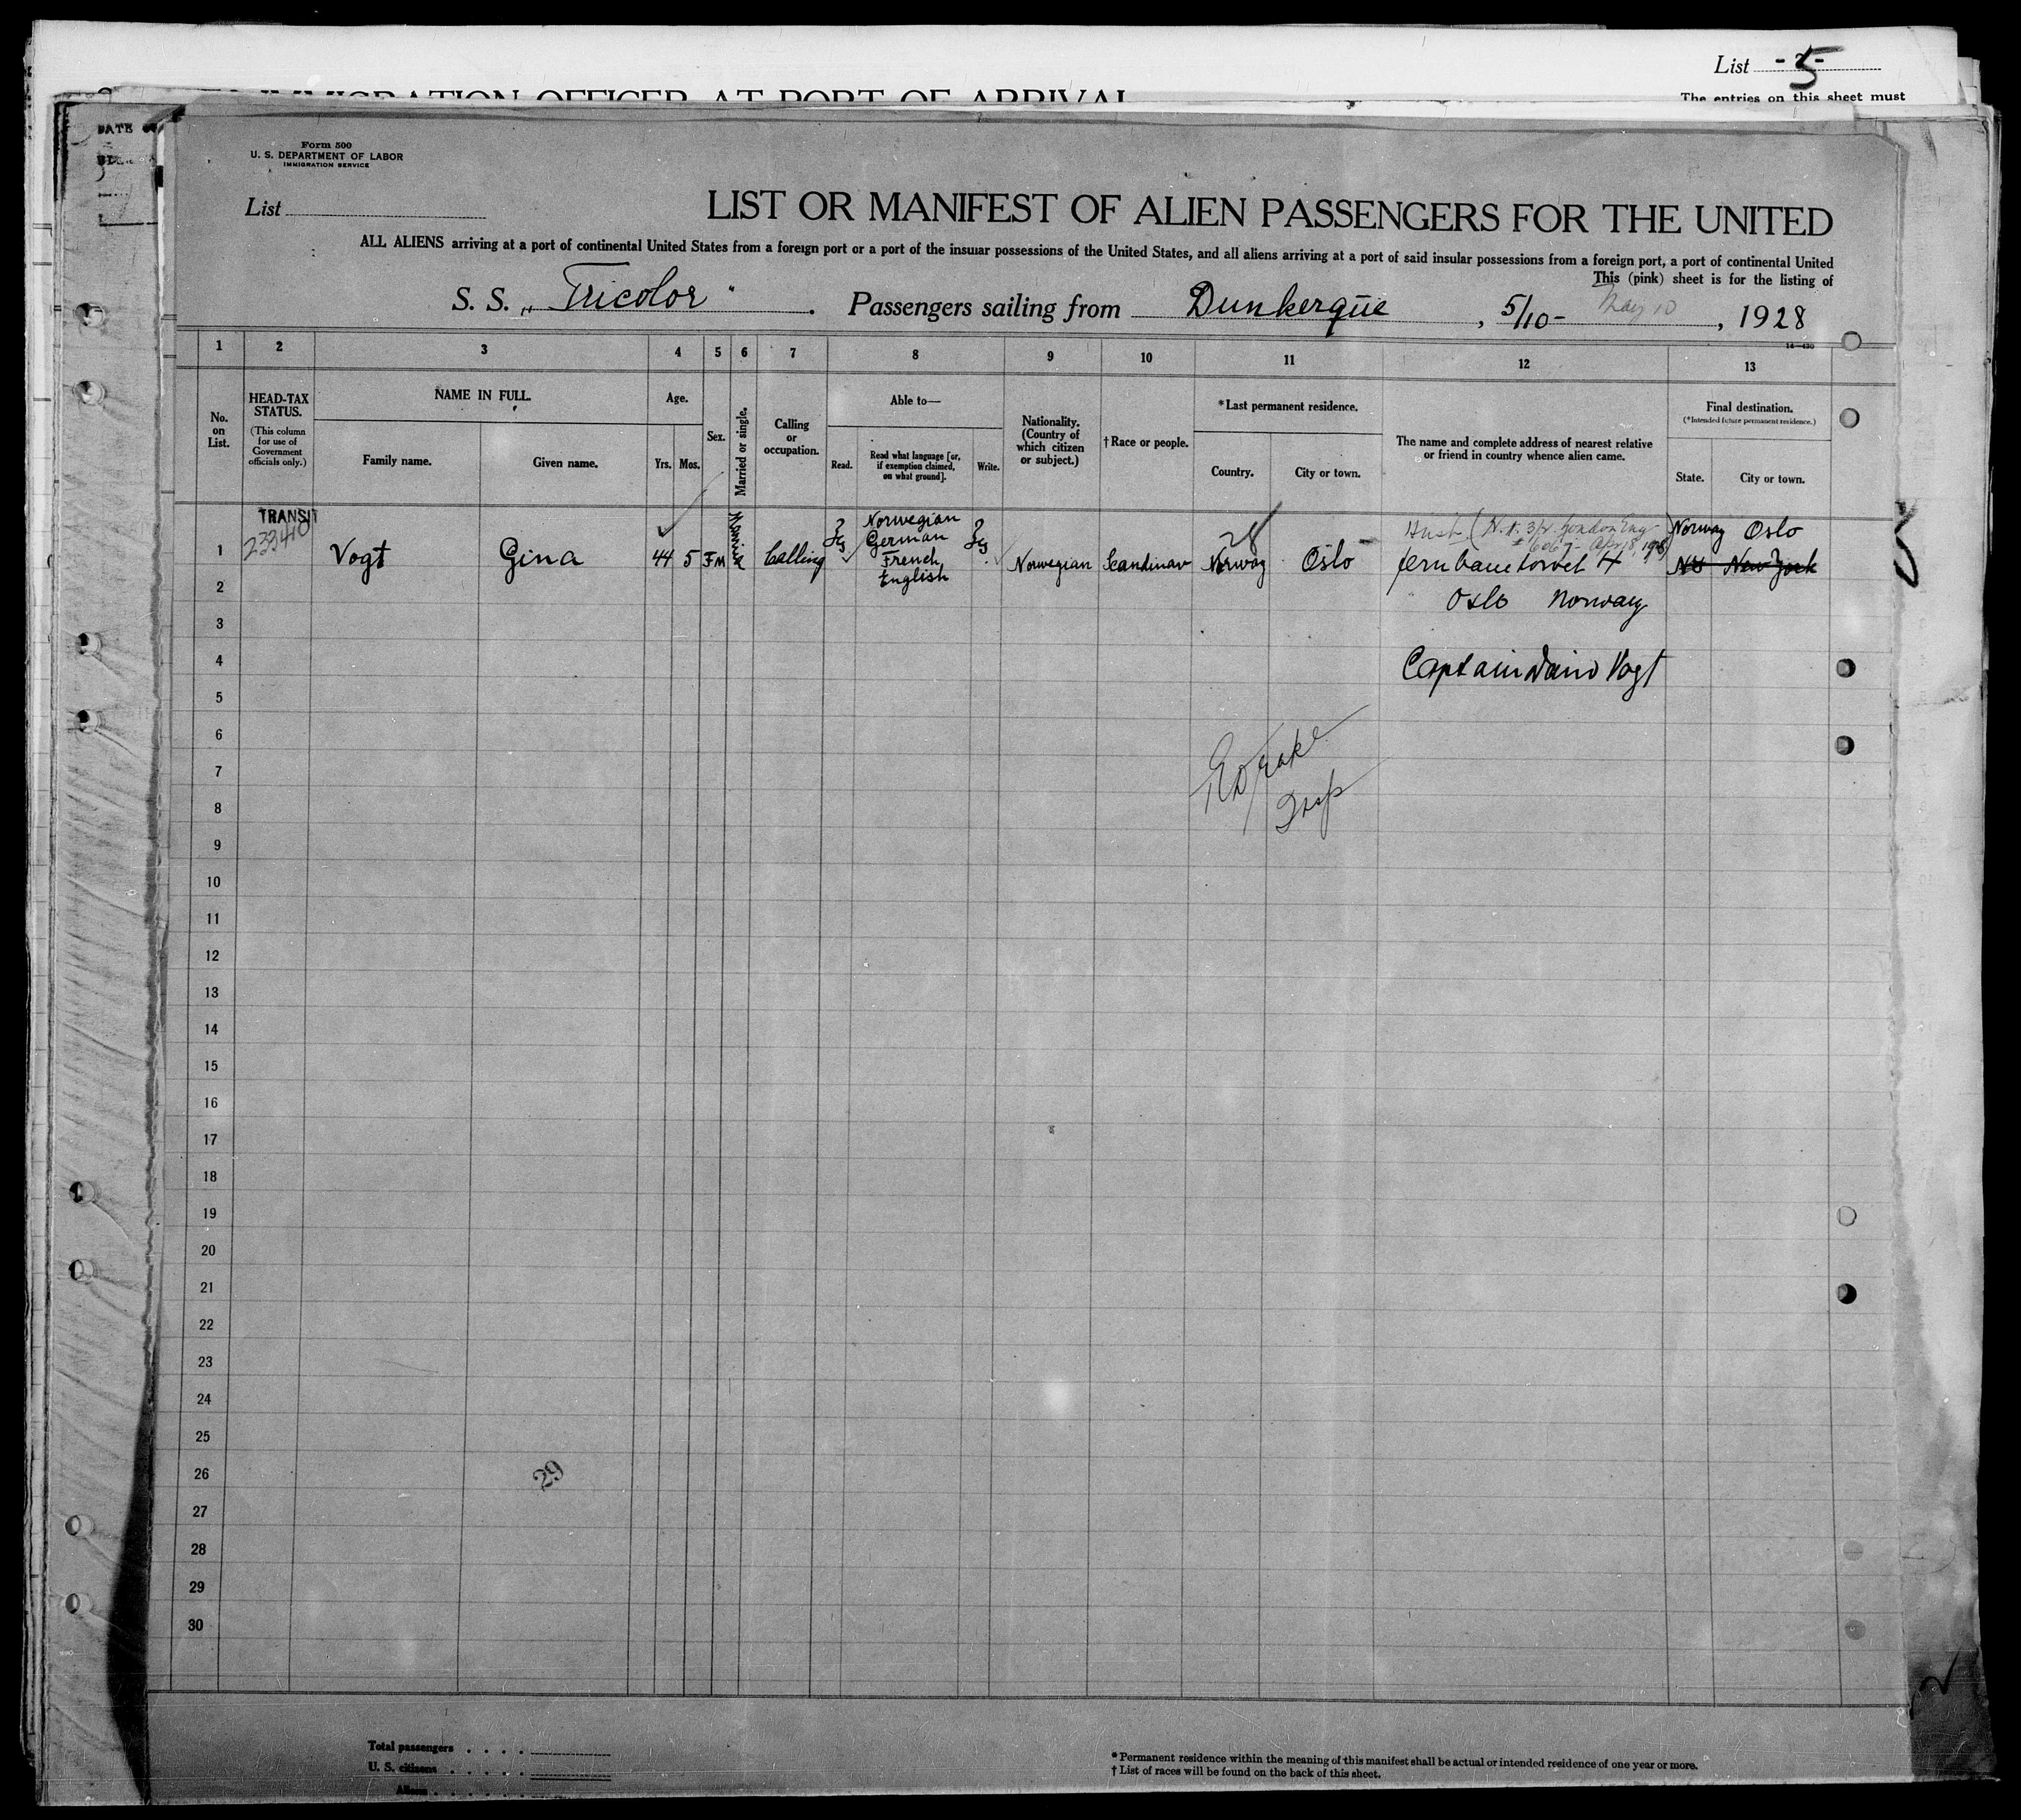 List - 5 -
IMMIGRATION OFFICER AT PORT OF ARRIVAL
The entries on this sheet must
DATE
Form 500
U. S. DEPARTMENT OF LABOR
IMMIGRATION SERVICE
List
LIST OR MANIFEST OF ALIEN PASSENGERS FOR THE UNITED
ALL ALIENS arriving at a port of continental United States from a foreign port or a port of the insular possessions of the United States, and all aliens arriving at a port of said insular possessions from a foreign port, a port of continental United
This (pink) sheet is for the listing of
S. S. „Tricolor" . Passengers sailing from Dunkerque , 5/10- May 10 , 1928
16—430
1 2 3 4 5 6 7 8 9 10 11 12 13
No. on List.
HEAD-TAX STATUS.
(This column for use of Government officials only.)
NAME IN FULL.
Family name. Given name.
Age.
Yrs. Mos.
Sex.
Married or single.
Calling or occupation.
Able to—
Read. Read what language [or, if exemption claimed, on what ground]. Write.
Nationality. (Country of which citizen or subject.)
†Race or people.
*Last permanent residence.
Country. City or town.
The name and complete address of nearest relative or friend in country whence alien came.
Final destination.
(*Intended future permanent residence.)
State. City or town.
TRANSIT
1 Vogt Gina 44 5 Married Calling Norwegian German French English Norwegian Scandinav Norway Oslo
28
London Eng
Norway Oslo
NY New York
2 Oslo Norway
3
4 Captain Vogt
5
6
7
8
9
10
11
12
13
14
15
16
17
18
19
20
21
22
23
24
25
26
29
27
28
29
30
Total passengers . . . .
U. S. citizens . . . . .
Aliens . . . . . . .
* Permanent residence within the meaning of this manifest shall be actual or intended residence of one year or more.
† List of races will be found on the back of this sheet.